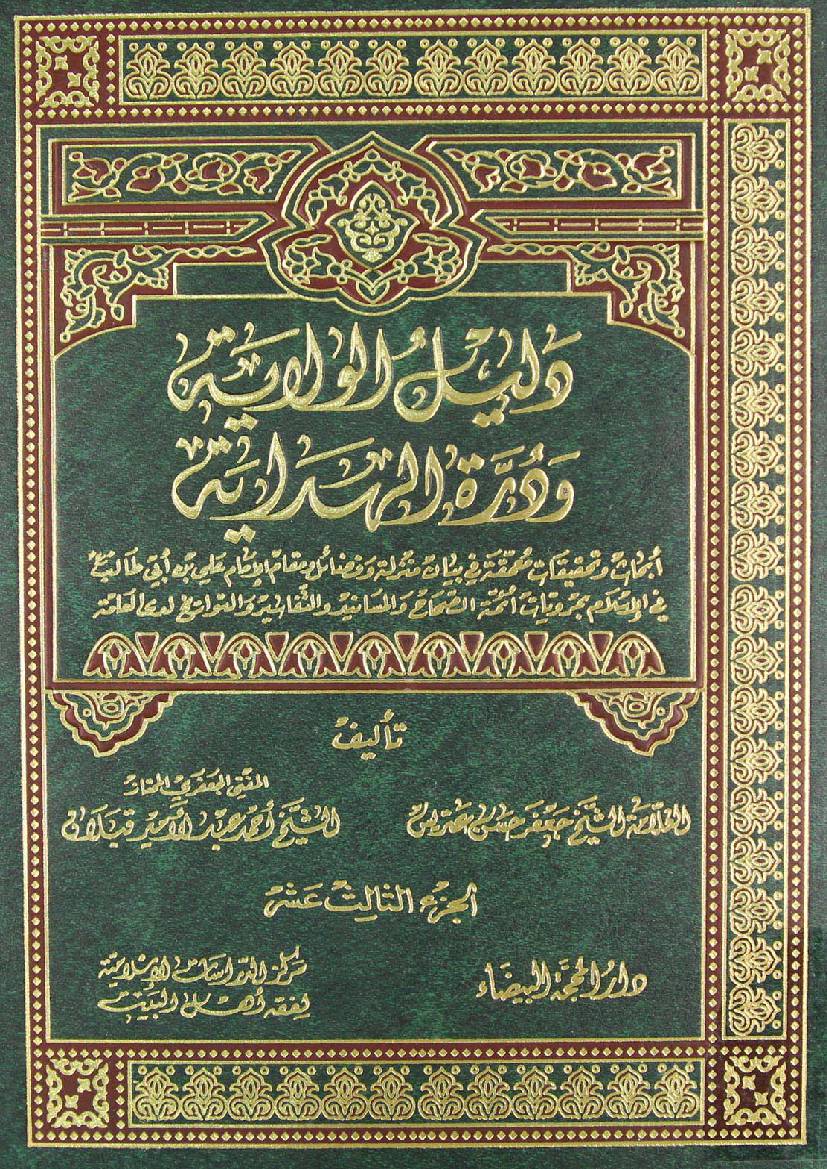 دَليلُ الولاية
وَدُرَّة الهداية
أبحاث وتحقيقات محققة في بيان منزلة وفضائل ومقام الإمام علي بن أبي طالب
في الإسلام بمرويات أئمة الصحاح والمسانيد والتفاسير والتواريخ لدى العامة
تأليف
العلامة الشيخ جعفر حسن عتريس
المفتي الجعفري الممتاز
الشيخ أحمد عبد الأمير قبلان
الجزء الثالث عشر
دار المحجة البيضاء
مركز الدراسات الإسلامية
لفقه أهل البيت